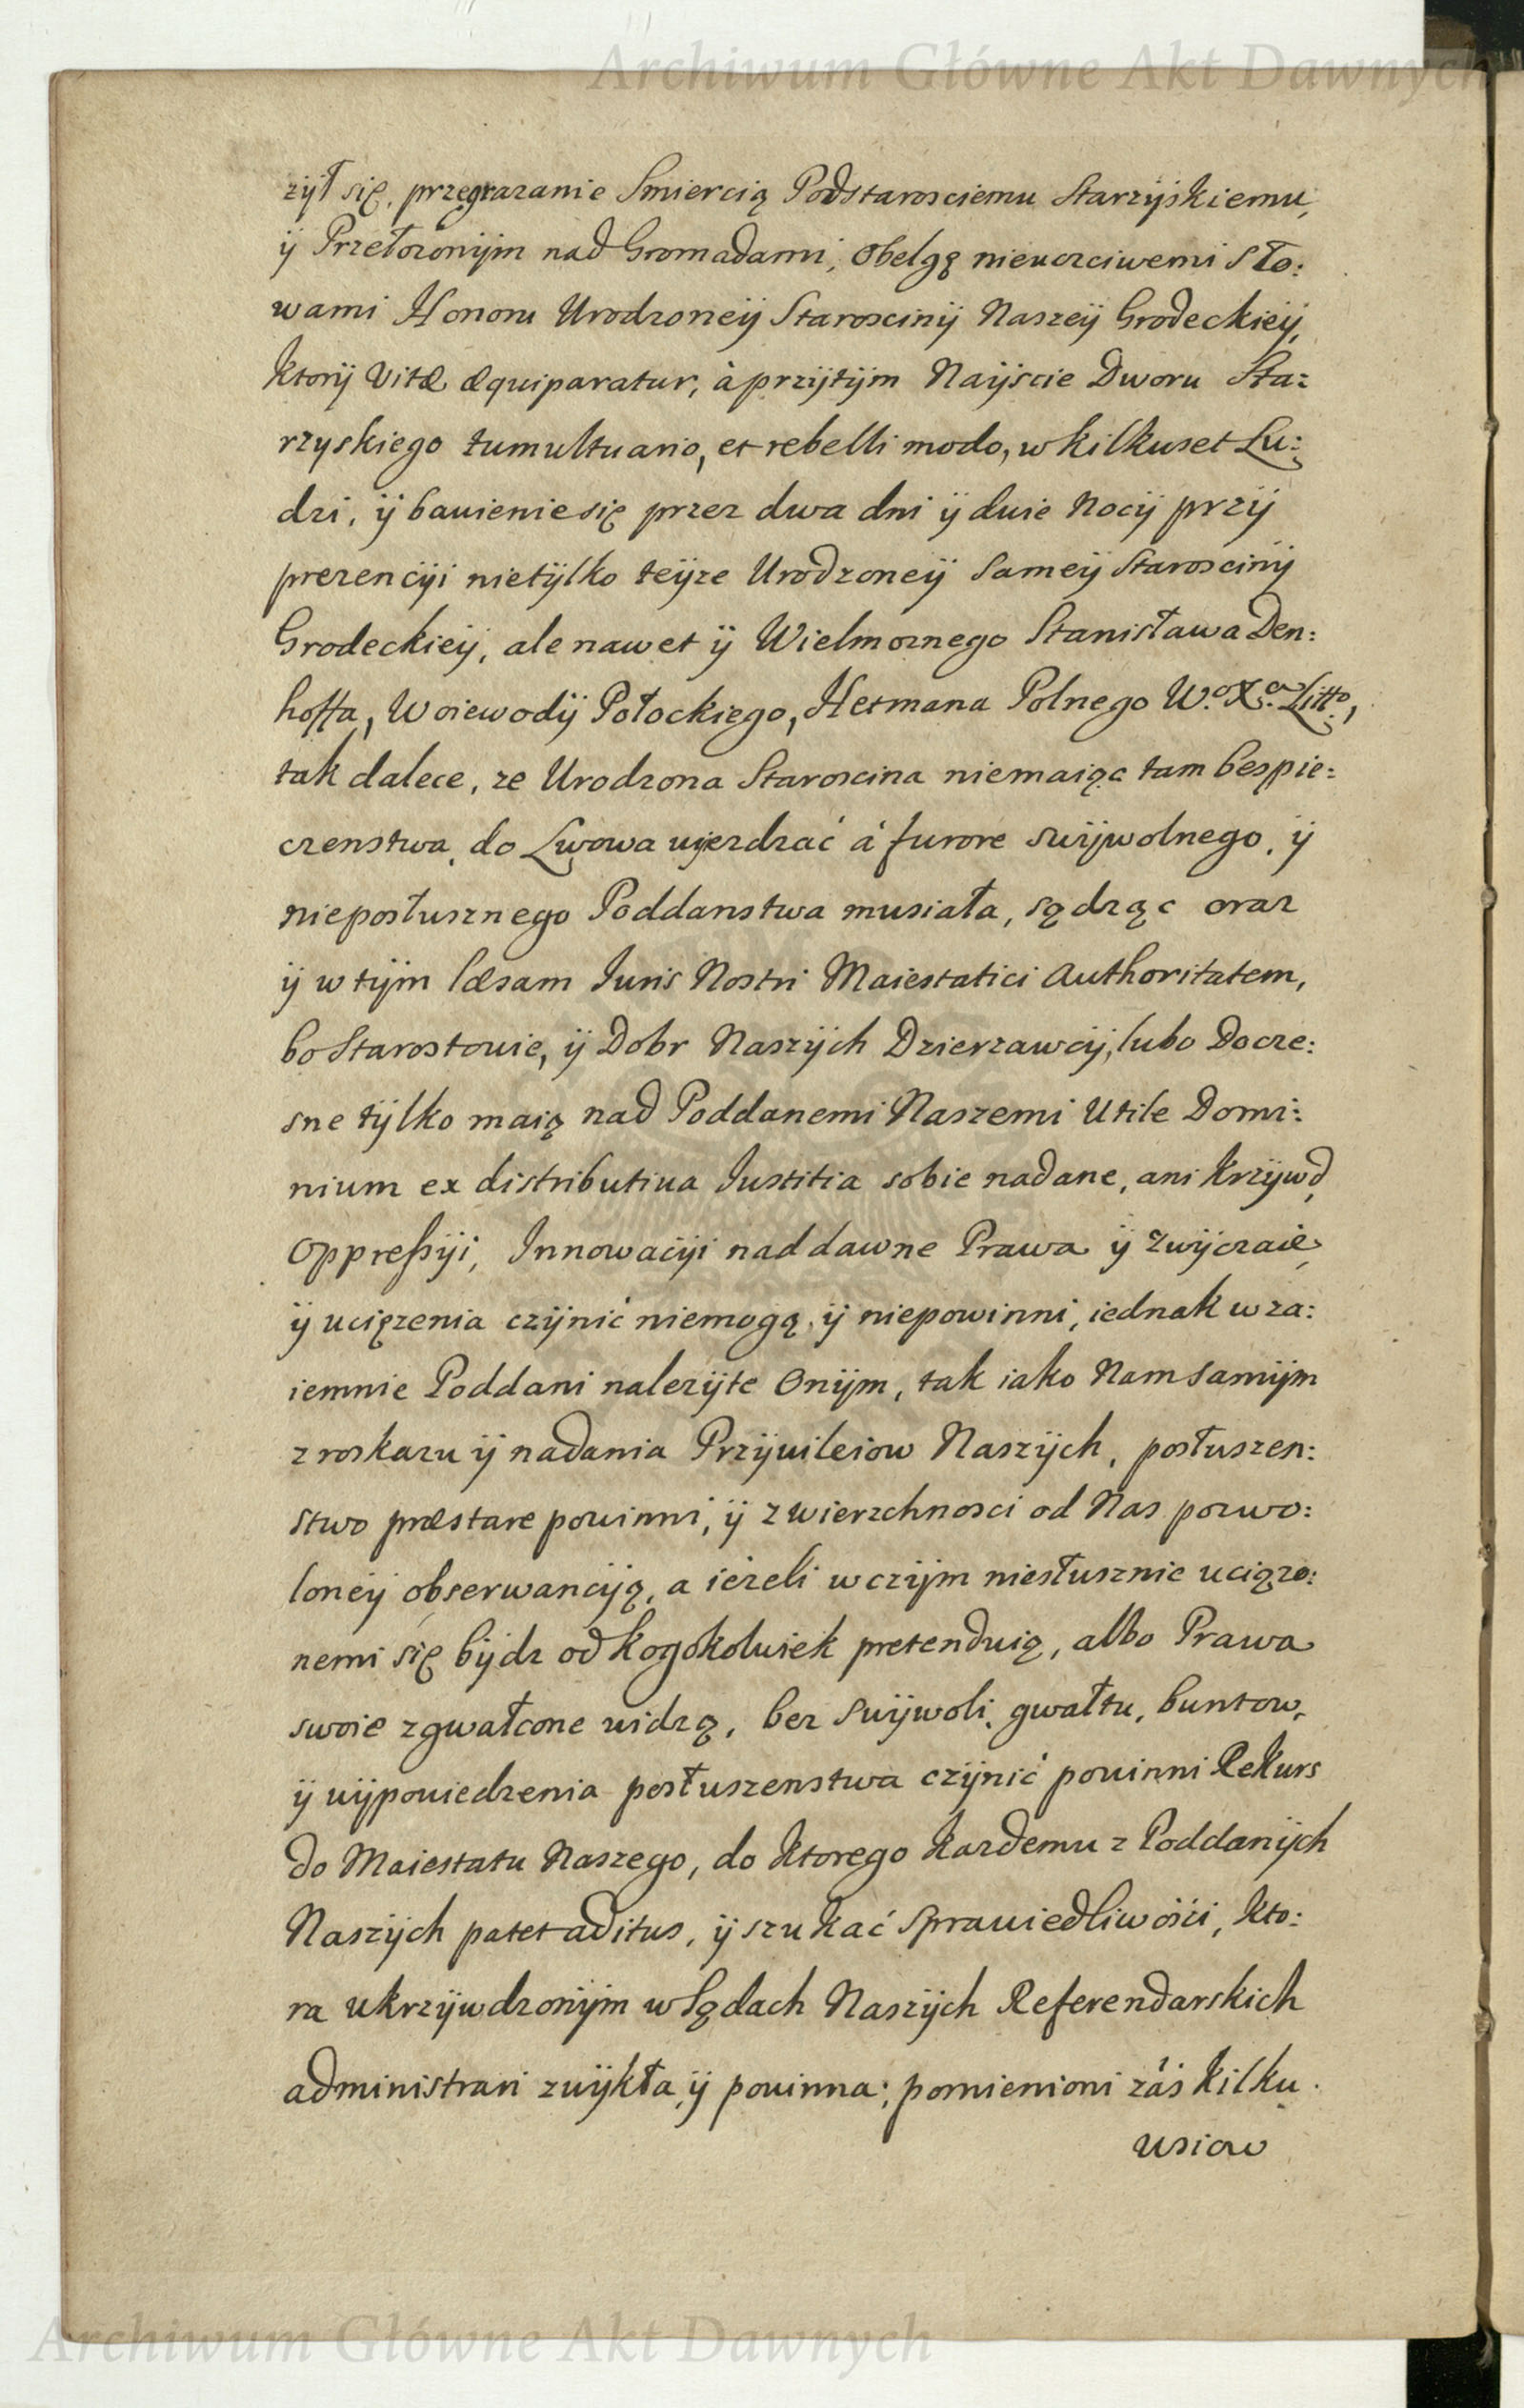 Archiwum Główne Akt Dawnych
zÿł się, przegrazanie Smiercią Podstarosciemu Starzÿskiemu,
ÿ Przełozonÿm nad Gromadami, Obelgę nieuczciwemi Sło:
wami Honoru Urodzoneÿ Starosciny Naszeÿ Grodeckieÿ,
ktorÿ Vitæ æquiparatur, à przÿtÿm Naÿscie Dworu Sta:
rzyskiego tumultuario, et rebelli modo, w kilkuset Lu:
dzi, ÿ bauienie się przez dwa dni ÿ duie Nocÿ przÿ
prezencÿi nietÿlko teÿze Urodzoneÿ Sameÿ Starosciny
Grodeckieÿ, ale nawet ÿ Wielmoznego Stanisława Den:
hoffa, Woiewodÿ Połockiego, Hetmana Polnego W.º X.ª Litto,
tak dalece, ze Urodzona Staroscina niemaiąc tam bespie:
czenstwa, do Lwowa uÿezdzać à furore swÿwolnego, ÿ
nieposłusznego Poddanstwa musiała, sądząc oraz
ÿ w tÿm læsam Juris Nostri Maiestatici Authoritatem,
bo Starostouie, ÿ Dobr Naszÿch Dzierzawcÿ, lubo Docze:
sne tÿlko maią nad Poddanemi Naszemi Utile Domi:
nium ex distributiua Justitia sobie nadane, ani Krzÿwd,
Oppreßÿi, Innowacÿi nad dawne Prawa ÿ Zwÿczaie,
ÿ uciązenia czÿnić niemogą, ÿ niepowinni, iednak wza:
iemnie Poddani nalezÿte Onÿm, tak iako Nam samÿm
z roskazu ÿ nadania Przÿuileiow Naszÿch, posłuszen:
stwo præstare pouinni, ÿ zwierzchnosci od Nas pozwo:
loneÿ obserwancÿą, a iezeli w czÿm niesłusznie uciązo:
nemi się bÿdz od kogokoluiek pretenduią, albo Prawa
swoie zgwałcone uidzą, bez Suÿwoli, gwałtu, buntow,
ÿ uÿpouiedzenia posłuszenstwa czÿnić pouinni Rekurs
do Maiestatu Naszego, do ktorego kazdemu z Poddanÿch
Naszÿch patet aditus, ÿ szukać Sprauiedliwości, kto:
ra ukrzÿwdzonÿm w Sądach Naszÿch Referendarskich
administrari zuÿkła, ÿ pouinna; pomienioni záś kilku
usiow
Archiwum Główne Akt Dawnych